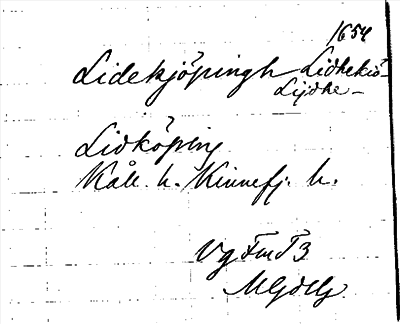 1654
Lidekjöpingh Lidhekiö-
Lijdhe-
Lidköping
Kåll. h. Kinnefj. h.
Vg Fm T3